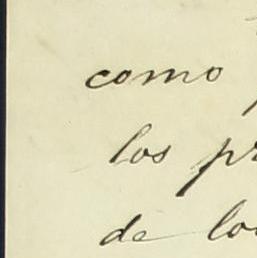 como
los pr
de lo